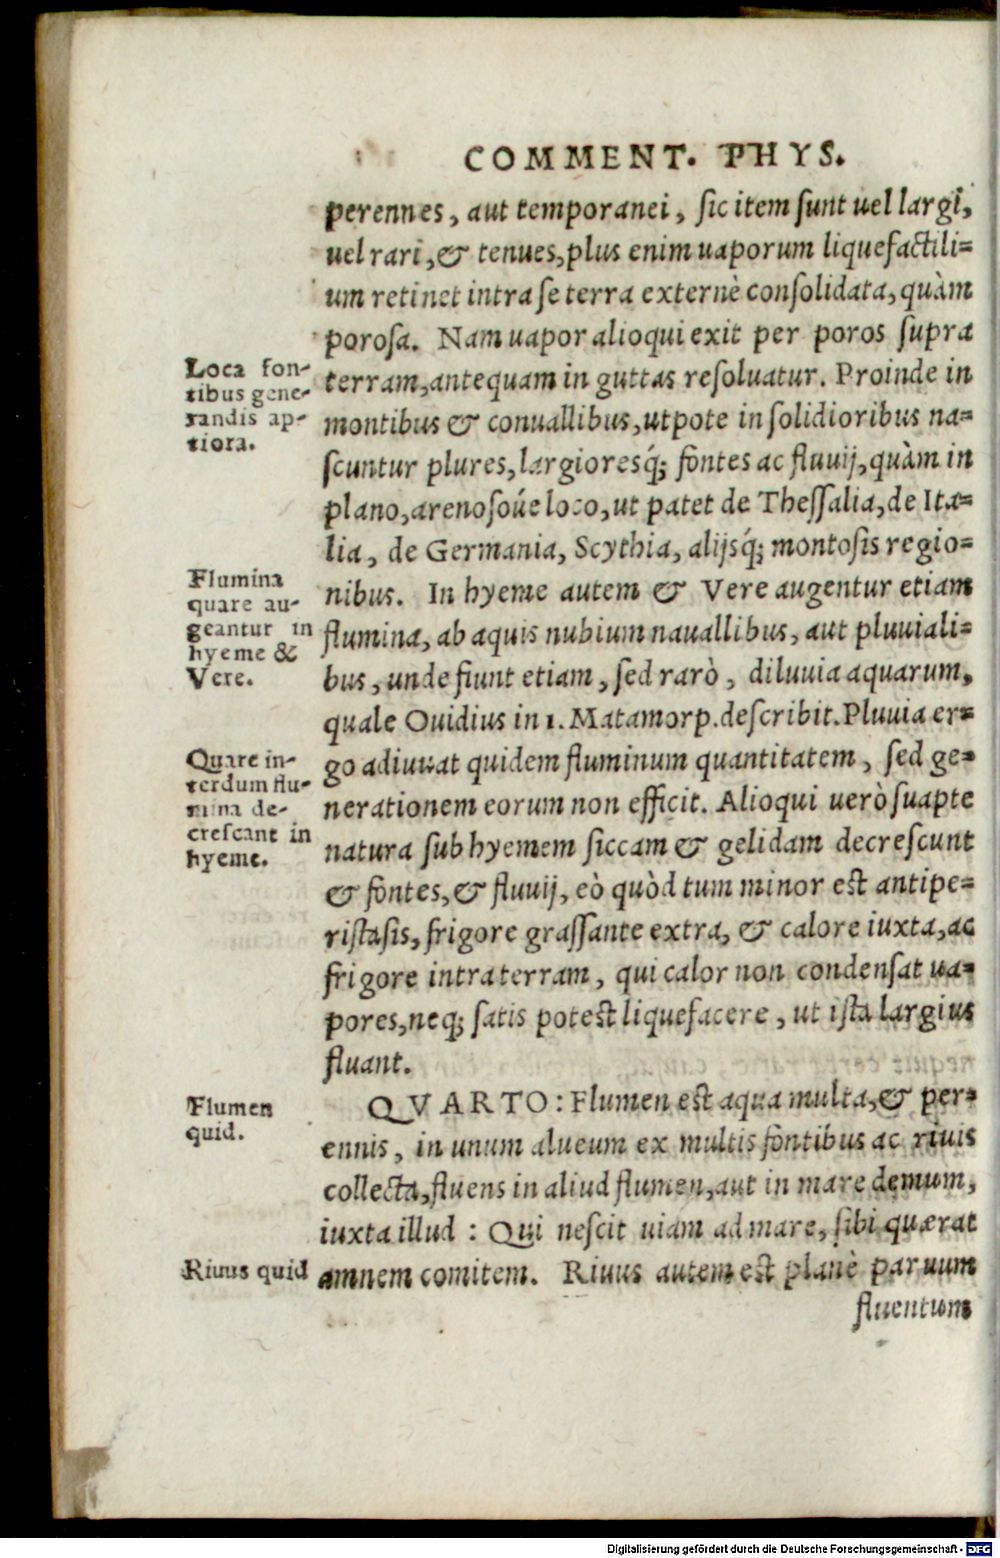 COMMENT. PHYS.
perennes, aut temporanei, sic item sunt uel largi,
uel rari, & tenues, plus enim uaporum liquefactili=
um retinet intra se terra externè consolidata, quàm
porosa. Nam uapor alioqui exit per poros supra
terram, antequam in guttas resoluatur. Proinde in
montibus & conuallibus, utpote in solidioribus na=
scuntur plures, largioresq́; fontes ac fluuij, quàm in
plano, arenosoúe loco, ut patet de Thessalia, de Ita=
lia, de Germania, Scythia, alijsq́; montosis regio=
nibus. In hyeme autem & Vere augentur etiam
flumina, ab aquis nubium naualibus, aut pluuiali=
bus, unde fiunt etiam, sed rarò, diluuia aquarum,
quale Ouidius in 1. Matamorp. describit. Pluuia er=
go adiuuat quidem fluminum quantitatem, sed ge=
nerationem eorum non efficit. Alioqui uerò suapte
natura sub hyemem siccam & gelidam decrescunt
& fontes, & fluuij, eò quòd tum minor est antipe=
ristasis, frigore grassante extra, & calore iuxta, ac
frigore intra terram, qui calor non condensat ua=
pores, neq; satis potest liquefacere, ut ista largius
fluant.
QVARTO: Flumen est aqua multa, & per=
ennis, in unum alueum ex multis fontibus ac riuis
collecta, fluens in aliud flumen, aut in mare demum,
iuxta illud: Qui nescit uiam ad mare, sibi quærat
amnem comitem. Riuus autem est planè paruum
fluentum
Loca fon-
tibus gene-
randis ap-
tiora.
Flumina
quare au-
geantur in
hyeme &
Vere.
Quare in-
terdum flu-
mina de-
crescant in
hyeme.
Flumen
quid.
Riuus quid
Digitalisierung gefördert durch die Deutsche Forschungsgemeinschaft - DFG